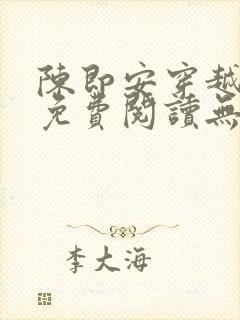 陳即安穿越
免費閱讀無
李大海